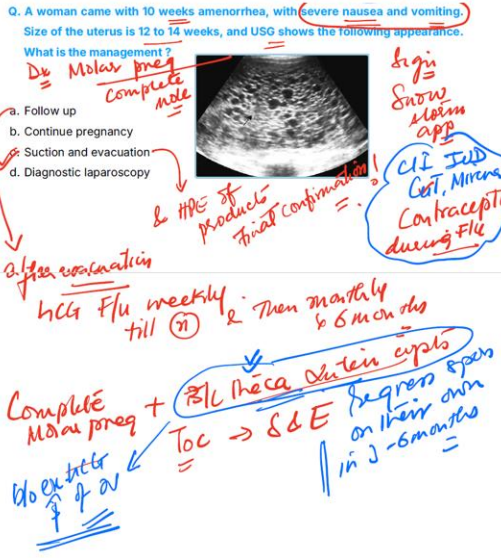 Q. A woman came with 10 weeks amenorrhea, with severe nausea and vomiting.
Size of the uterus is 12 to 14 weeks, and USG shows the following appearance.
What is the management ?
Dx Molar preg
Complete mole
Sign
Snow
storm
app
a. Follow up
b. Continue pregnancy
c. Suction and evacuation
d. Diagnostic laparoscopy
& HPE of
products
Final confirmation!
CI IUD
CuT, Mirena
Contracept
during F/u
after evacuation
hCG F/u weekly
till (n)
& Then monthly
x 6 months
Complete
Molar preg + B/L Theca Lutein cysts
TOC → S & E
Regress
on their own
in 3-6 months
b/o
↑ of ov